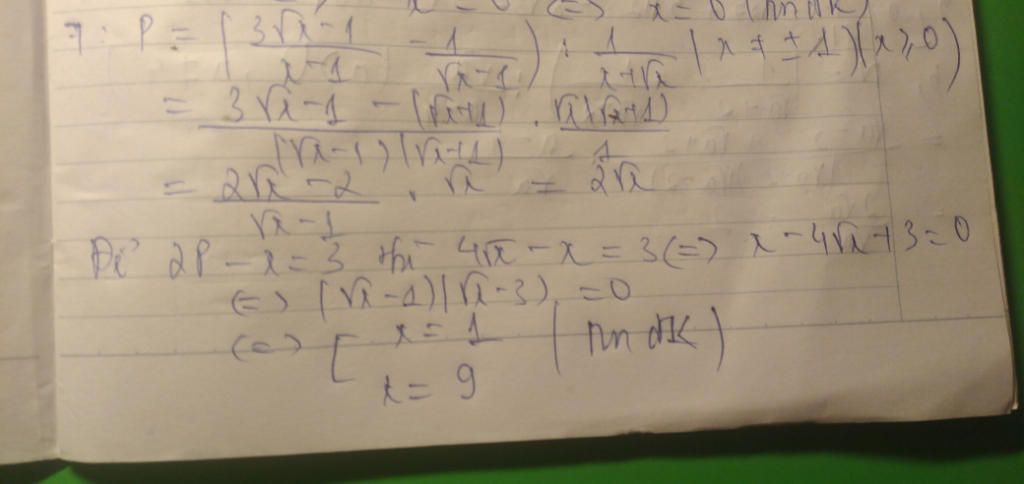 x = 0 (=> x = 0 (tmđk)
7: P = (3√x-1 / x-1 - 1 / √x-1) : 1 / x+√x (x ≠ ±1)(x ≥ 0)
= 3√x-1 - (√x+1) / (√x-1)(√x+1) . √x(√x+1) / 1
= 2√x-2 / √x-1 . √x = 2√x
Để 2P - x = 3 thì 4√x - x = 3 (=) x - 4√x + 3 = 0
(=) (√x-1)(√x-3) = 0
(=) [ x = 1 (tmđK)
x = 9